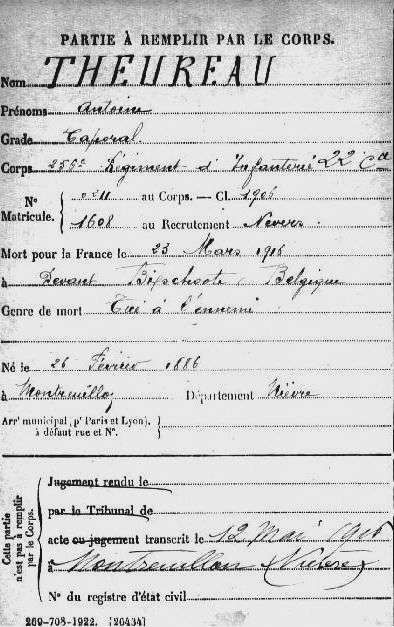 PARTIE À REMPLIR PAR LE CORPS.
Nom THEUREAU
Prénoms Antoine
Grade Caporal
Corps 256e Régiment d'Infanterie 22 Cie
N° Matricule.
0211 au Corps. — Cl. 1906
1608 au Recrutement Nevers
Mort pour la France le 23 Mars 1916
à Devant Bixschoote, Belgique
Genre de mort Tué à l'ennemi
Né le 26 Février 1886
à Montreuillon Département Nièvre
Arrt municipal (pr Paris et Lyon),
à défaut rue et N°.
Cette partie n'est pas à remplir par le Corps.
Jugement rendu le
par le Tribunal de
acte ou jugement transcrit le 12 Mai 1916
à Montreuillon (Nièvre)
N° du registre d'état civil
269-708-1922. [26434]